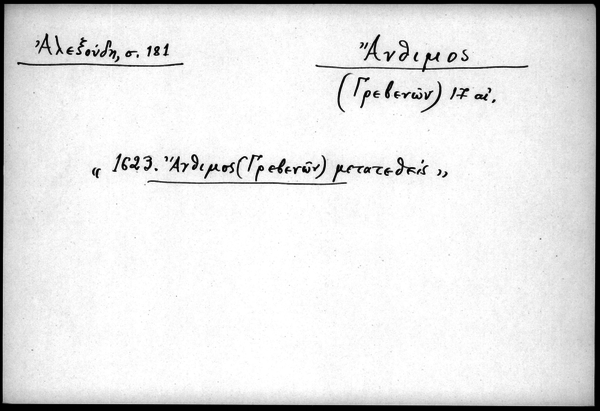 Ἀλεξούδη, σ. 181
Ἄνθιμος
(Γρεβενῶν) 17 αἰ.
« 1623. Ἄνθιμος (Γρεβενῶν) μετατεθείς »